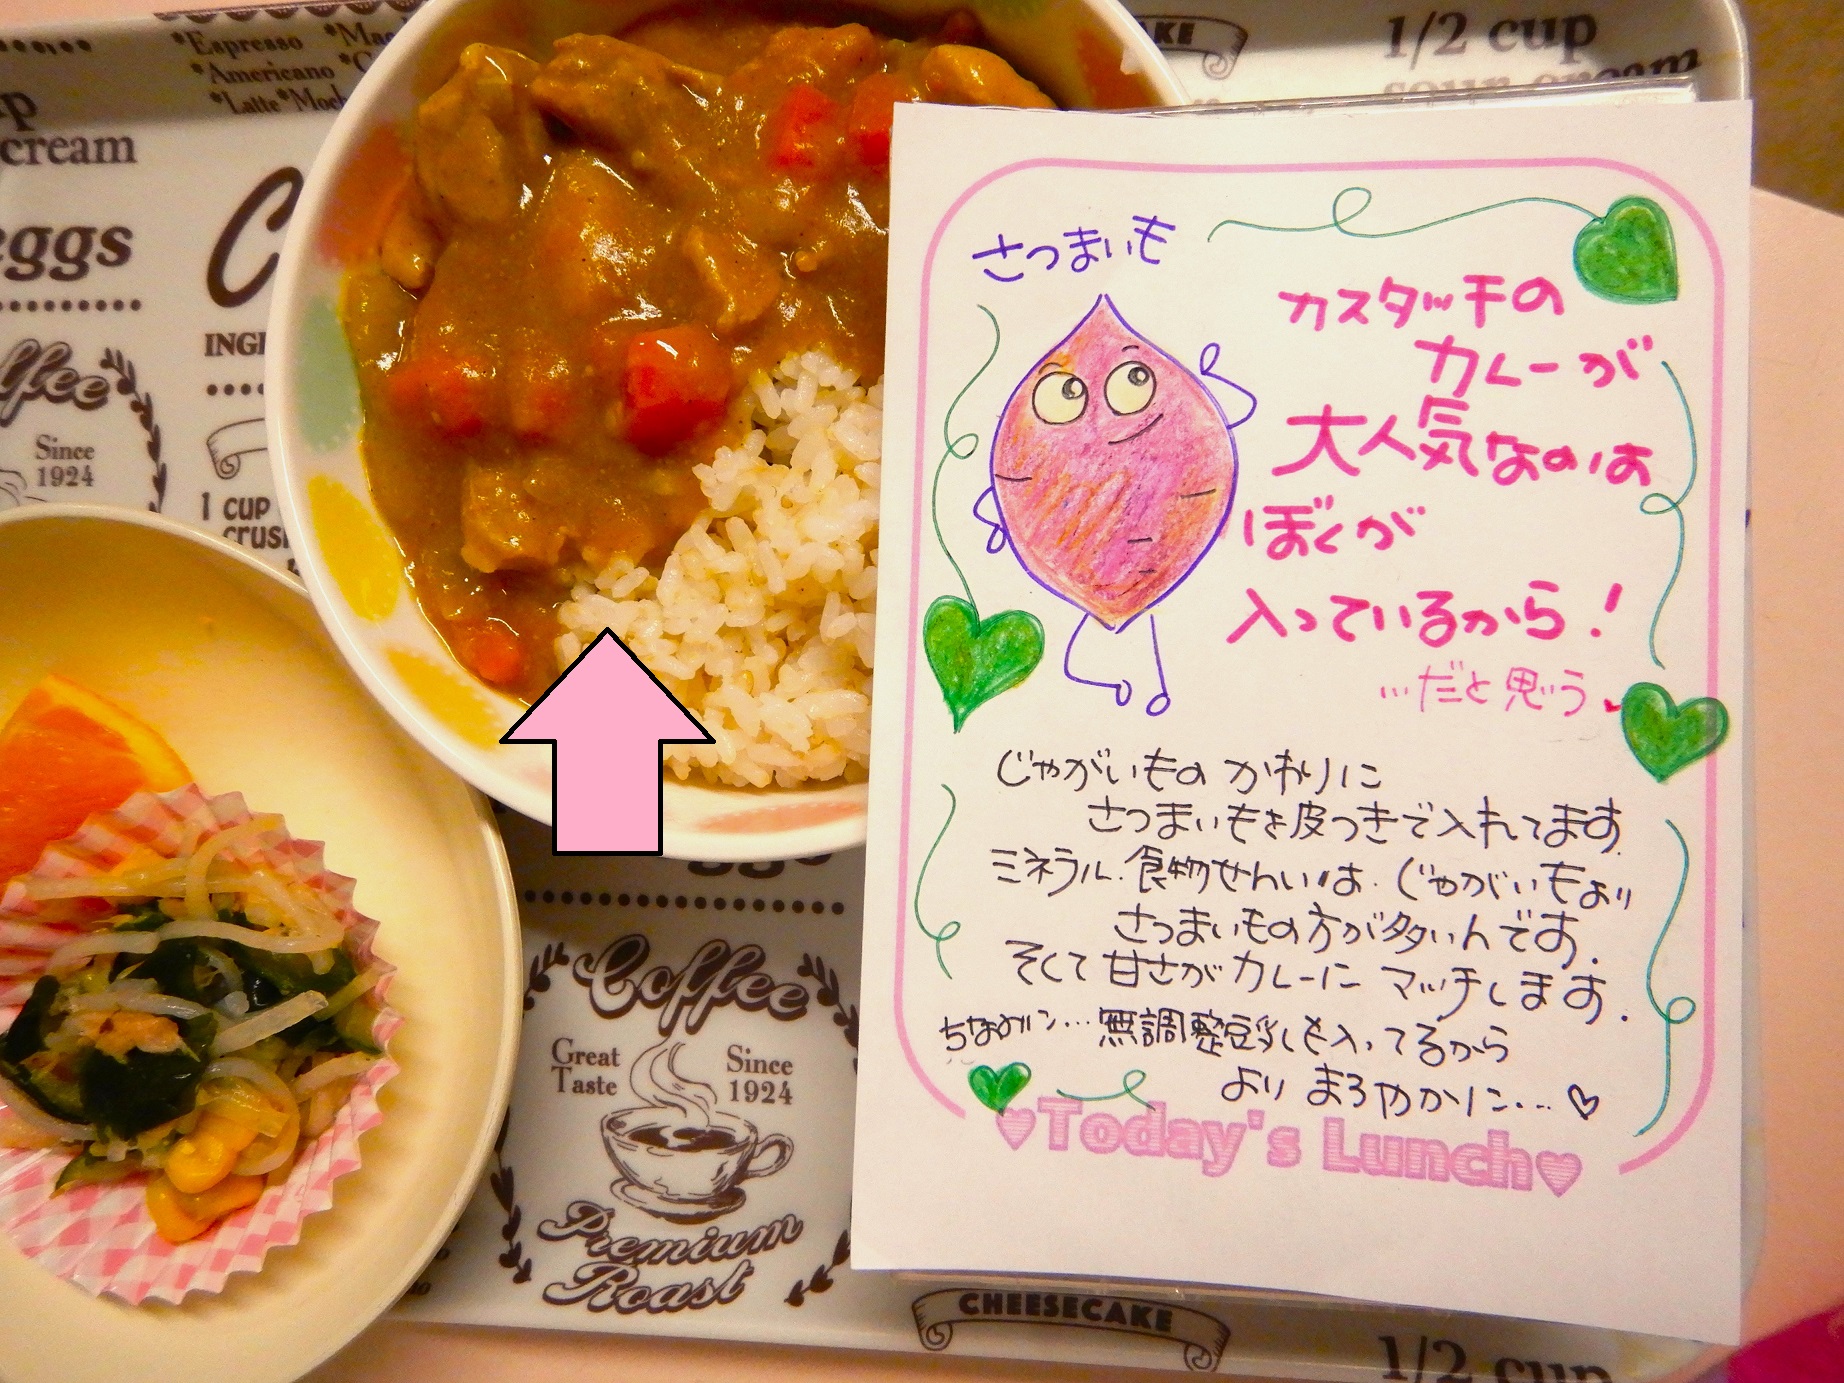 *Espresso
*Americano
*Latte*Moch
cream
eggs
Coffee
Since
1924
1 CUP
CAKE
1/2 cup
sour cream
さつまいも
カスタッチの
カレーが
大人気なのは
ぼくが
入っているから!
…だと思う
じゃがいものかわりに
さつまいもを皮つきで入れてます.
ミネラル.食物せんいは.じゃがいもより
さつまいもの方が多いんです.
そして甘さがカレーにマッチします.
ちなみに…無調整豆乳も入ってるから
よりまろやかに…♡
♥Today's Lunch♥
Coffee
Great
Taste
Since
1924
Premium
Roast
CHEESECAKE
1/2 cup